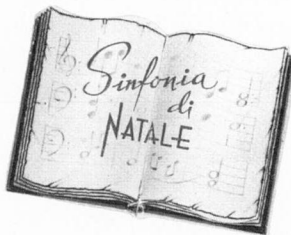 Sinfonia
di
NATALE